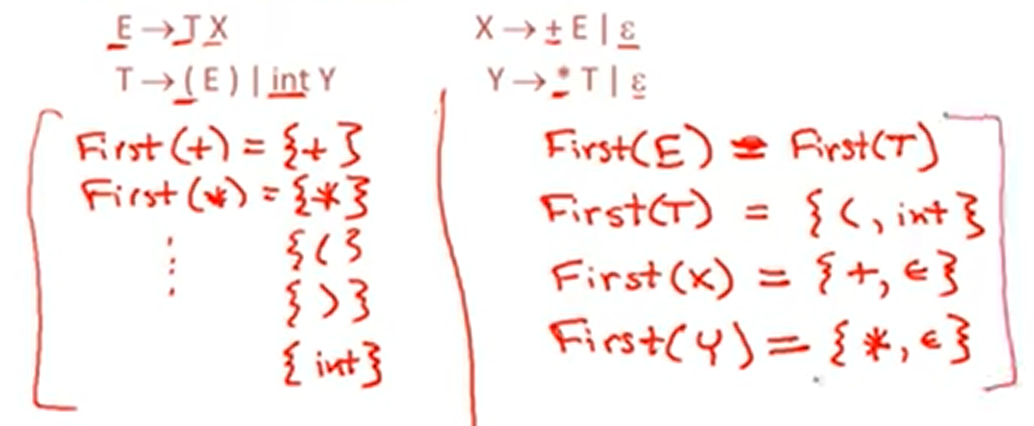 E → T X X → + E | ε
T → ( E ) | int Y Y → * T | ε
First(+) = {+}
First(*) = {*}
⋮ {(}
{)}
{int}
First(E) = First(T)
First(T) = {(, int}
First(X) = {+, ε}
First(Y) = {*, ε}